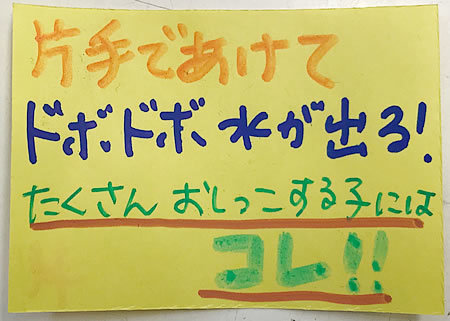 片手であけて
ドボドボ水が出ろ!
たくさんおしっこする子には
コレ!!